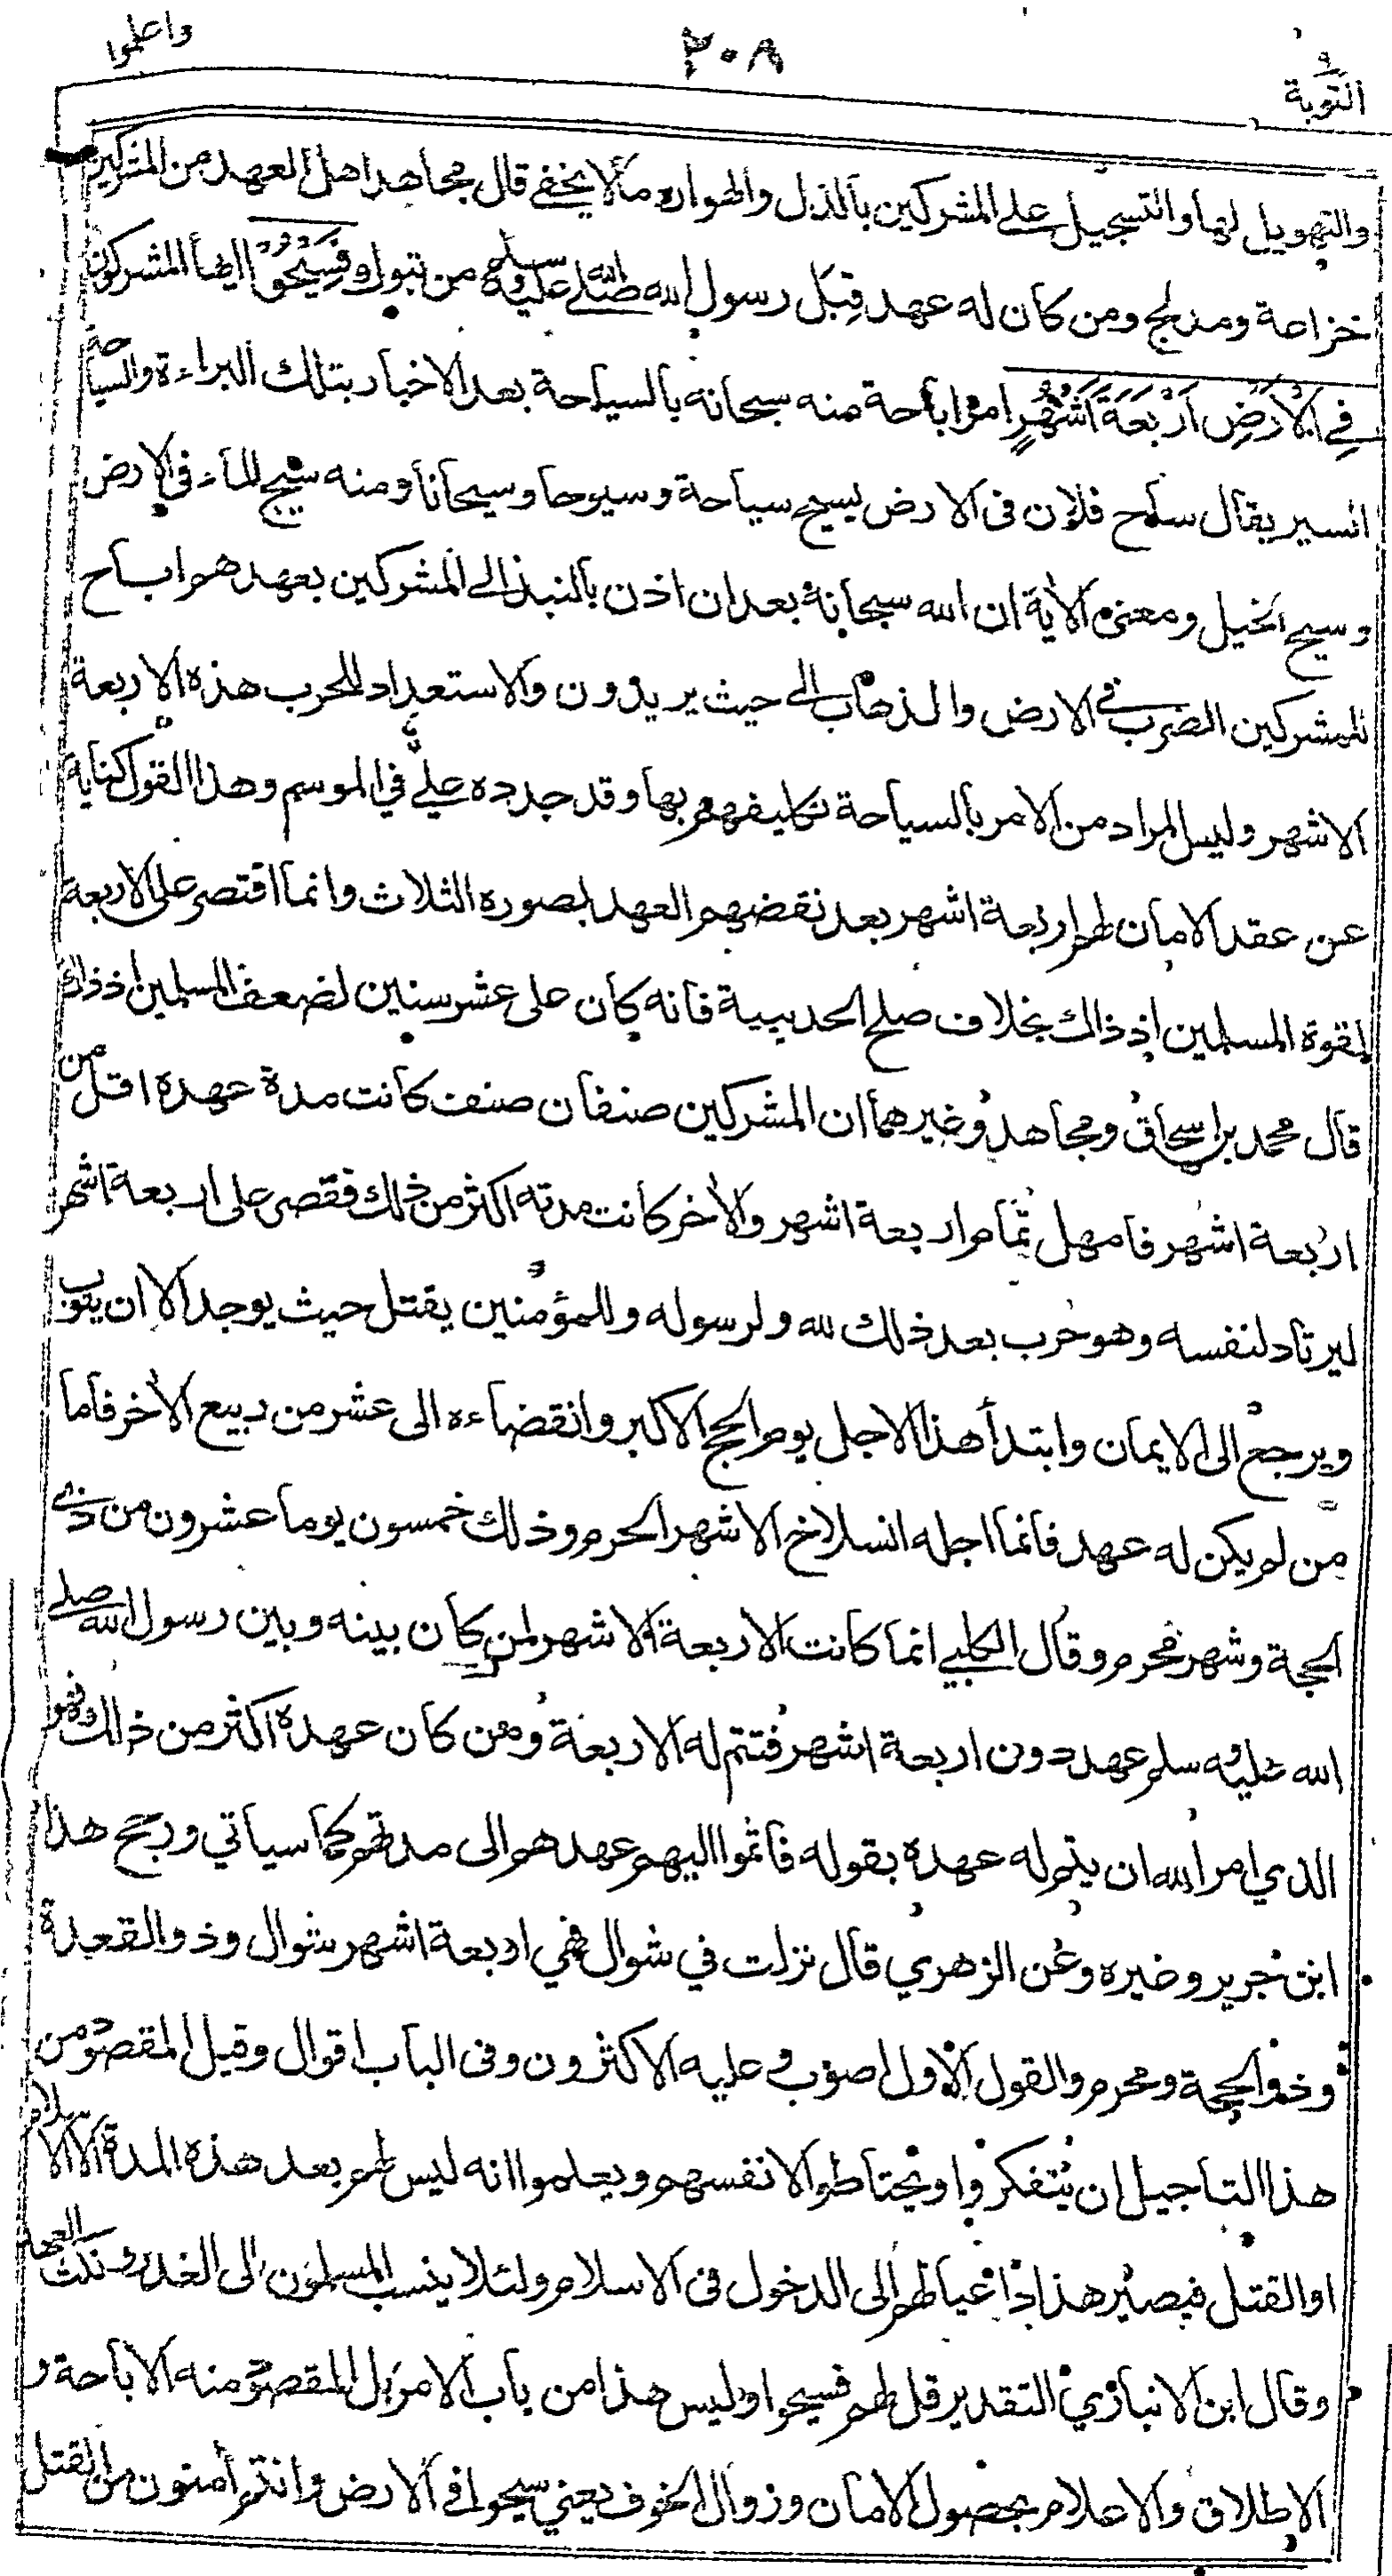 واعلموا
٢٠٨
٩
التوبة
والتهويل لها والتسجيل على المشركين بالذل والهوان مالا يخفى قال مجاهد اهل العهد من المشركين
خزاعة ومدلج ومن كان له عهد قِبَل رسول الله صلى الله عليه وسلم من تبوك فَسِيْحُوْا ايها المشركون
فِي الْاَرْضِ اَرْبَعَةَ اَشْهُرٍ امر اباحة منه سبحانه بالسياحة بعد الاخبار بتلك البراءة والسياحة
السير يقال ساح فلان فى الارض يسيح سياحة وسيوحا وسيحانا ومنه سيح الماء فى الارض
وسيح الخيل ومعنى الأية ان الله سبحانه بعد ان اذن بالنبذ الى المشركين بعهدهم اباح
للمشركين الضرب في الارض والذهاب الى حيث يريدون والاستعداد للحرب هذه الاربعة
الاشهر وليس المراد من الامر بالسياحة تكليفهم بها وقد جدده علي في الموسم وهذا القول كناية
عن عقد الامان لهم اربعة اشهر بعد نقضهم العهد بصوره الثلاث وانما اقتصر على الاربعة
لقوة المسلمين اذ ذاك بخلاف صلح الحديبية فانه كان على عشر سنين لضعف المسلمين اذ ذاك
قال محمد بن اسحاق ومجاهد وغيرهما ان المشركين صنفان صنف كانت مدة عهده اقل من
اربعة اشهر فامهل تمام اربعة اشهر والأخر كانت مدته اكثر من ذلك فقصر على اربعة اشهر
ليرتاد لنفسه وهو حرب بعد ذلك لله ولرسوله وللمؤمنين يقتل حيث يوجد الا ان يتوب
ويرجع الى الايمان وابتدأ هذا الاجل يوم الحج الاكبر وانقضاءه الى عشر من ربيع الأخر فاما
من لم يكن له عهد فانما اجله انسلاخ الاشهر الحرم وذلك خمسون يوما عشرون من ذي
الحجة وشهر محرم وقال الكلبي انما كانت الاربعة الاشهر لمن كان بينه وبين رسول الله صلى
الله عليه وسلم عهد دون اربعة اشهر فتتم له الاربعة ومن كان عهده اكثر من ذلك فهو
الذي امر الله ان يتم له عهده بقوله فاتموا اليهم عهدهم الى مدتهم كما سياتي ورجح هذا
ابن جرير وغيره وعن الزهري قال نزلت في شوال فهي اربعة اشهر شوال وذو القعدة
وذو الحجة ومحرم والقول الاول اصوب وعليه الاكثرون وفى الباب اقوال وقيل المقصود من
هذا التاجيل ان يتفكروا ويحتاطوا لانفسهم ويعلموا انه ليس لهم بعد هذه المدة الا الاسلام
او القتل فيصير هذا داعيا لهم الى الدخول فى الاسلام ولئلا ينسب المسلمون الى الغدر ونكث العهد
وقال ابن الانباري التقدير قل لهم فسيحوا وليس هذا من باب الامر بل المقصود منه الاباحة و
الاطلاق والاعلام بحصول الامان وزوال الخوف يعني سيحوا في الارض وانتم أمنون من القتل